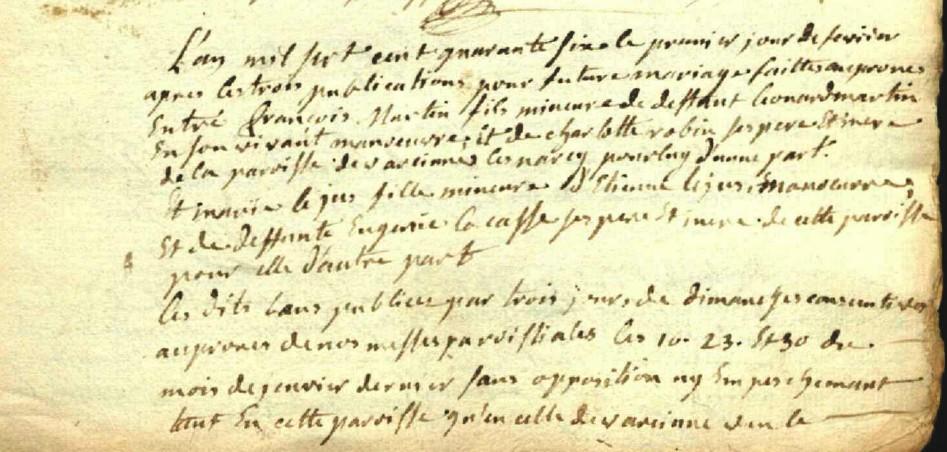 L'an mil sept cent quarante six le premier jour de fevrier
apres les trois publications pour future mariage faittes au prones
Entre François Martin fils mineure de deffunt leonard martin
En son vivant manoeuvre, et de charlotte robin ses pere Et mere
de la paroisse de varienne les narcy pour luy d'une part.
Et marie le jus fille mineure d'Etienne lejus, manoeuvre,
Et de deffunte la casse ses pere Et mere de cette paroisse
pour elle d'autre part
les dits bans publiee par trois jours de dimanches consecutives
au prones de nos messes paroissiales les 10. 23. Et 30 du
mois de jenvier dernier sans opposition ny Empeschemant
tant En cette paroisse qu'en celle de varienne veu le